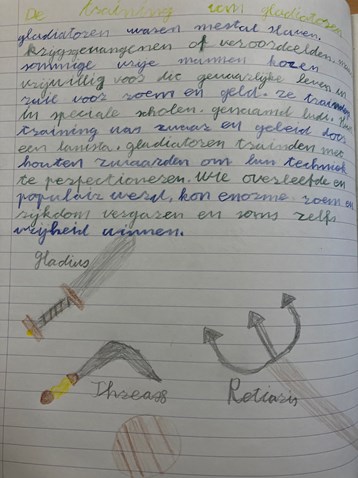 De training van gladiatoren
gladiatoren waren mestal slaven.
krijgsgevangenen of veroordeelden. maar
sommige vrije mannen kozen
vrijwillig voor dit gevaarlijke leven in
ruil voor roem en geld. ze trainden
in speciale scholen. genaamd ludi. Hun
training was zwaar en geleid door
een lanista. gladiatoren trainden met
houten zwaarden om hun techniek
te perfectioneren. Wie overleefde en
populair werd, kon enorme roem en
rijkdom vergaren en soms zelfs
vrijheid winnen.
gladius
Threass
Retiaris